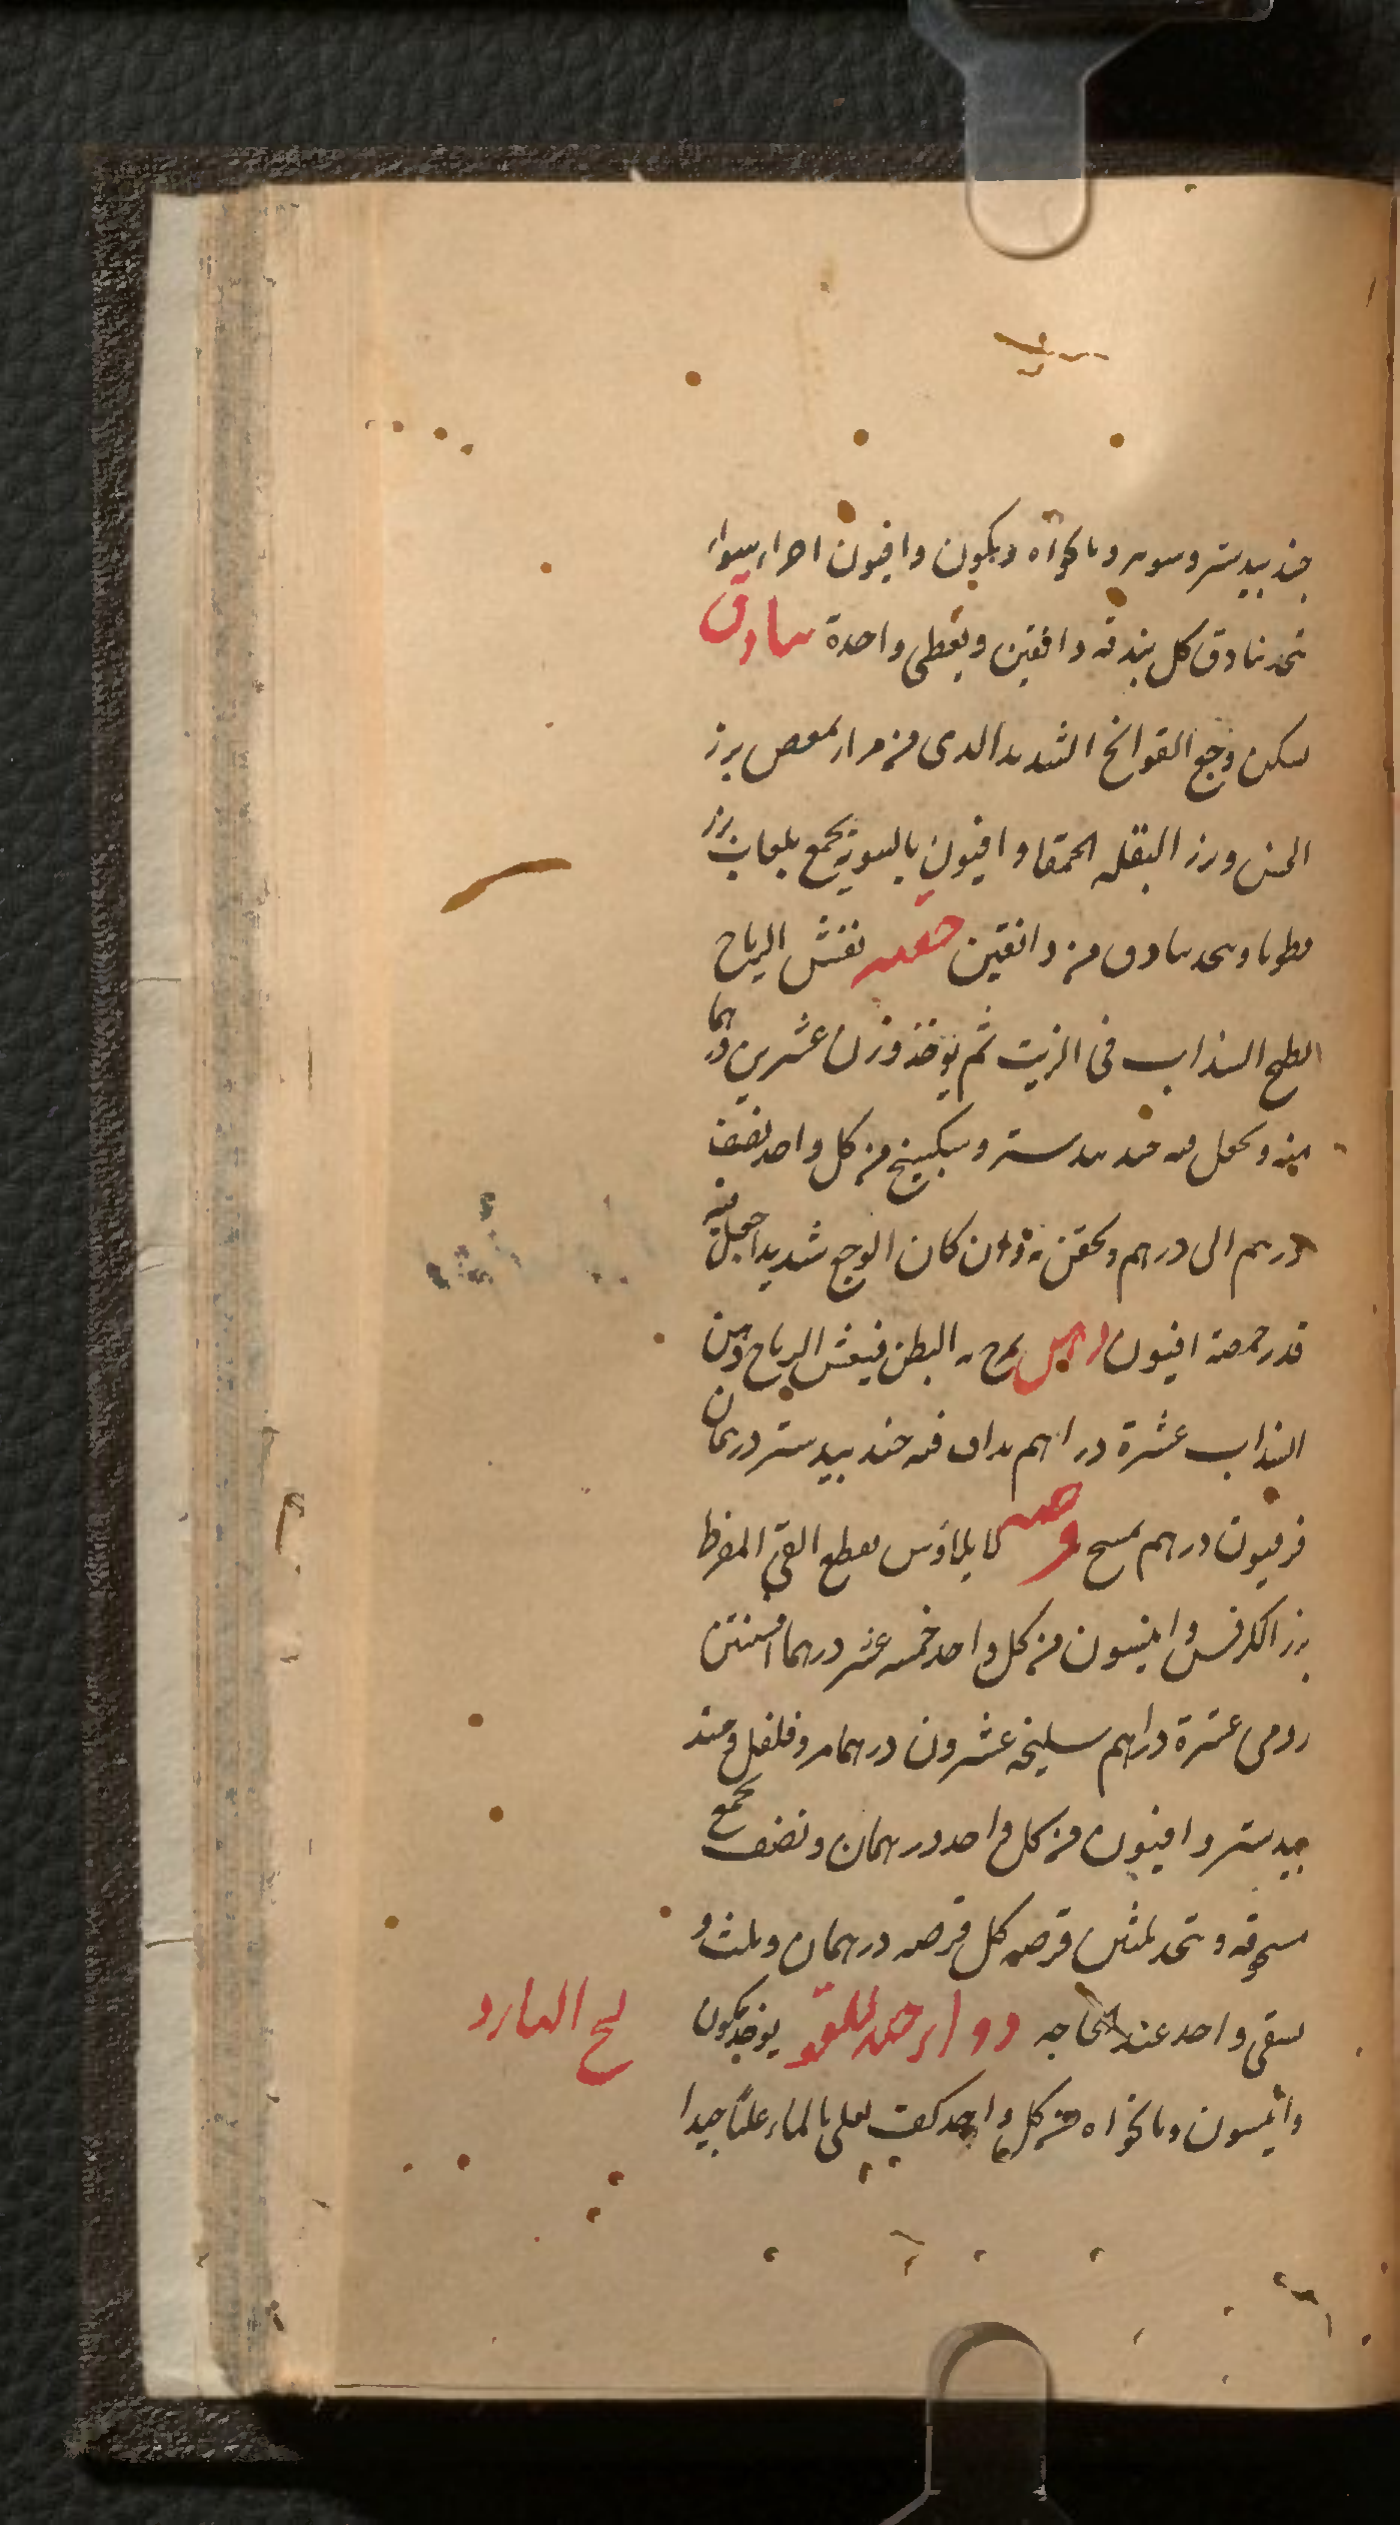 جندبيدستر وسوس ونانخواه وبكون وافيون احرا سوا
تحد بنادق كل بندقه دانقين ويعطى واحدة بنادق
يسكن وجع القولنج الشديد الذى من مرار ممعص برز
الخس وبرز البقله الحمقا وافيون بالسويه يجمع بلعاب برز
قطونا ويتخذ بنادق من دانقين حقنه تفش الرياح
يطبخ السذاب فى الزيت ثم يوخذ وزن عشرين درهما
منه ويجعل فيه جندبيدستر وسكبينج من كل واحد نصف
درهم الى درهم ويحقن به وان كان الوجع شديدا جعل فيه
قدر حمصة افيون دهن يمرخ به البطن فيفش الرياح دهن
السذاب عشرة دراهم يداف فيه جندبيدستر درهمان
فربيون درهم يمسح قرصه لايلاوس يقطع القئ المفرط
بزر الكرفس وانيسون من كل واحد خمسه عشر درهما افسنتين
رومى عشرة دراهم سليخه عشرون درهما مر وفلفل وجند
بيدستر وافيون من كل واحد درهمان ونصف يجمع
مسحوقه وتتخذ ثلثين قرصه كل قرصه درهمان وثلث و
يسقى واحد عند الحاجه دوا للقو يوخذ كمون
لح البارد
وانيسون ونانخواه من كل واحد كف يغلى بالماء غليًا جيدا